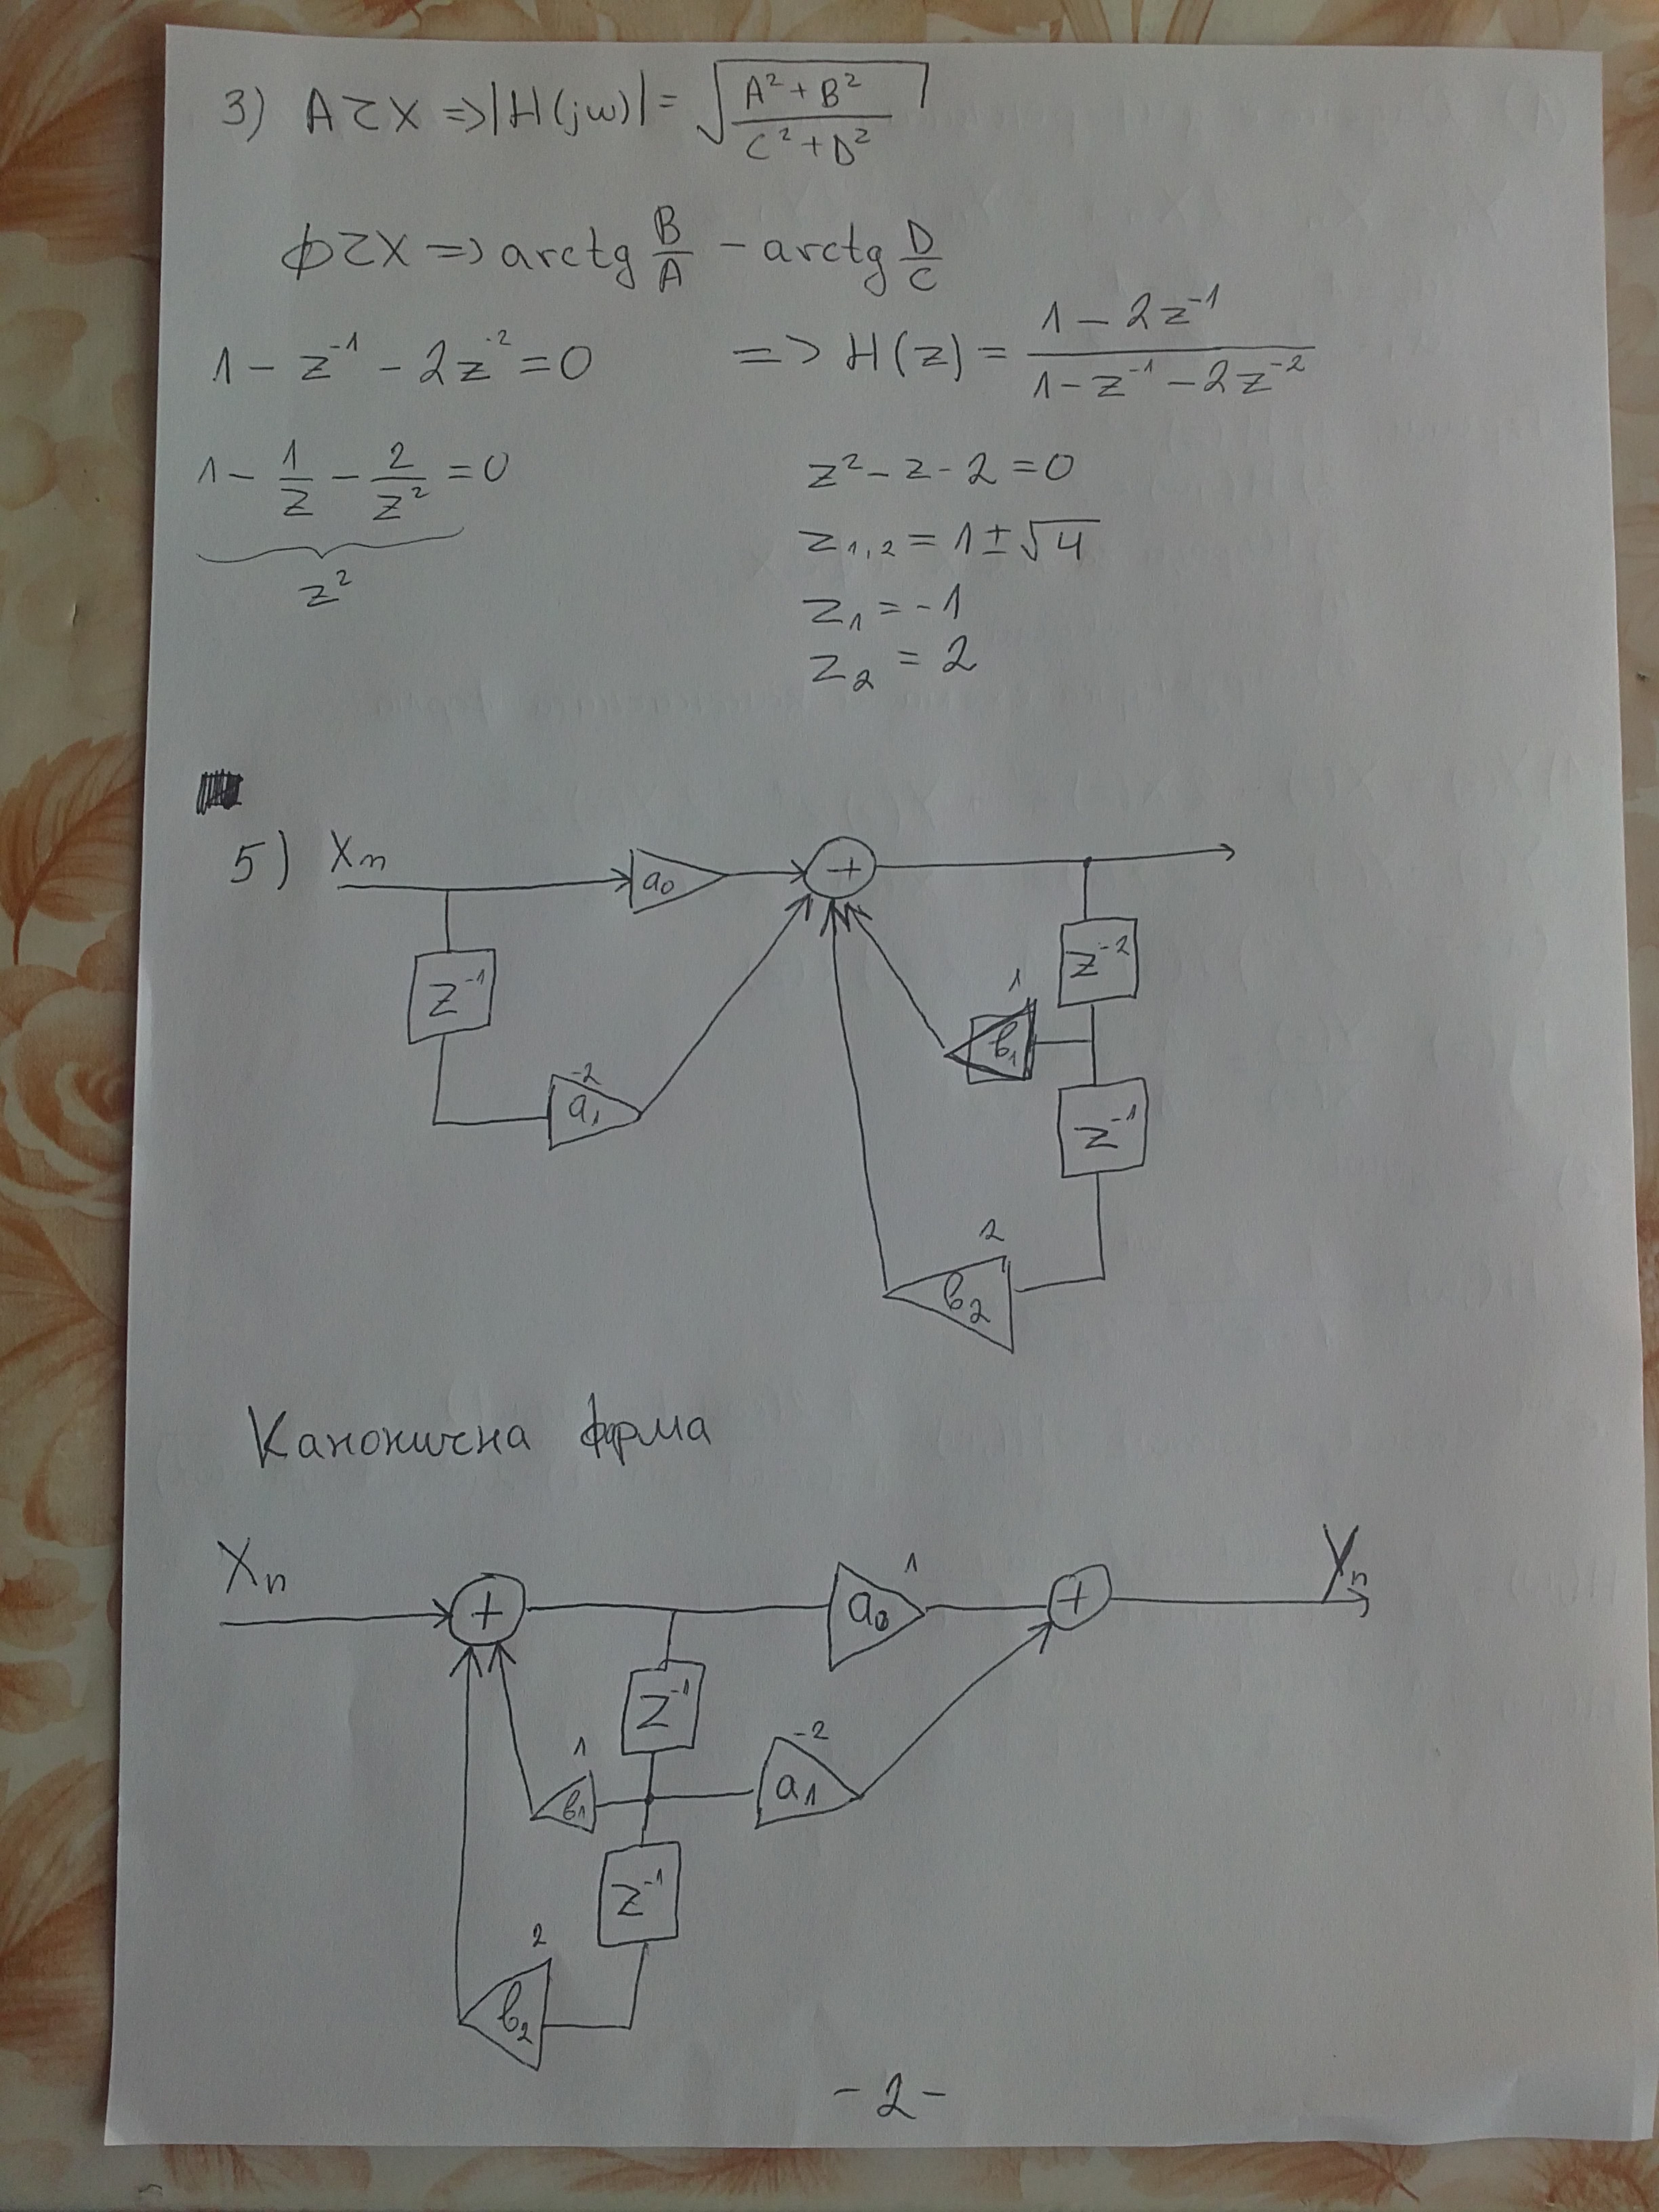 3) АЧХ => |H(jω)| = √((A² + B²)/(C² + D²))
ФЧХ => arctg B/A - arctg D/C
1 - z⁻¹ - 2z⁻² = 0 => H(z) = (1 - 2z⁻¹)/(1 - z⁻¹ - 2z⁻²)
1 - 1/z - 2/z² = 0
z²
z² - z - 2 = 0
z₁,₂ = 1 ± √4
z₁ = -1
z₂ = 2
5) Xn
a₀
+
z⁻²
z⁻¹
1
в₁
-2
a₁
z⁻¹
2
в₂
Канонична форма
Xn
+
1
a₀
+
Yn
z⁻¹
1
в₁
-2
a₁
z⁻¹
2
в₂
- 2 -